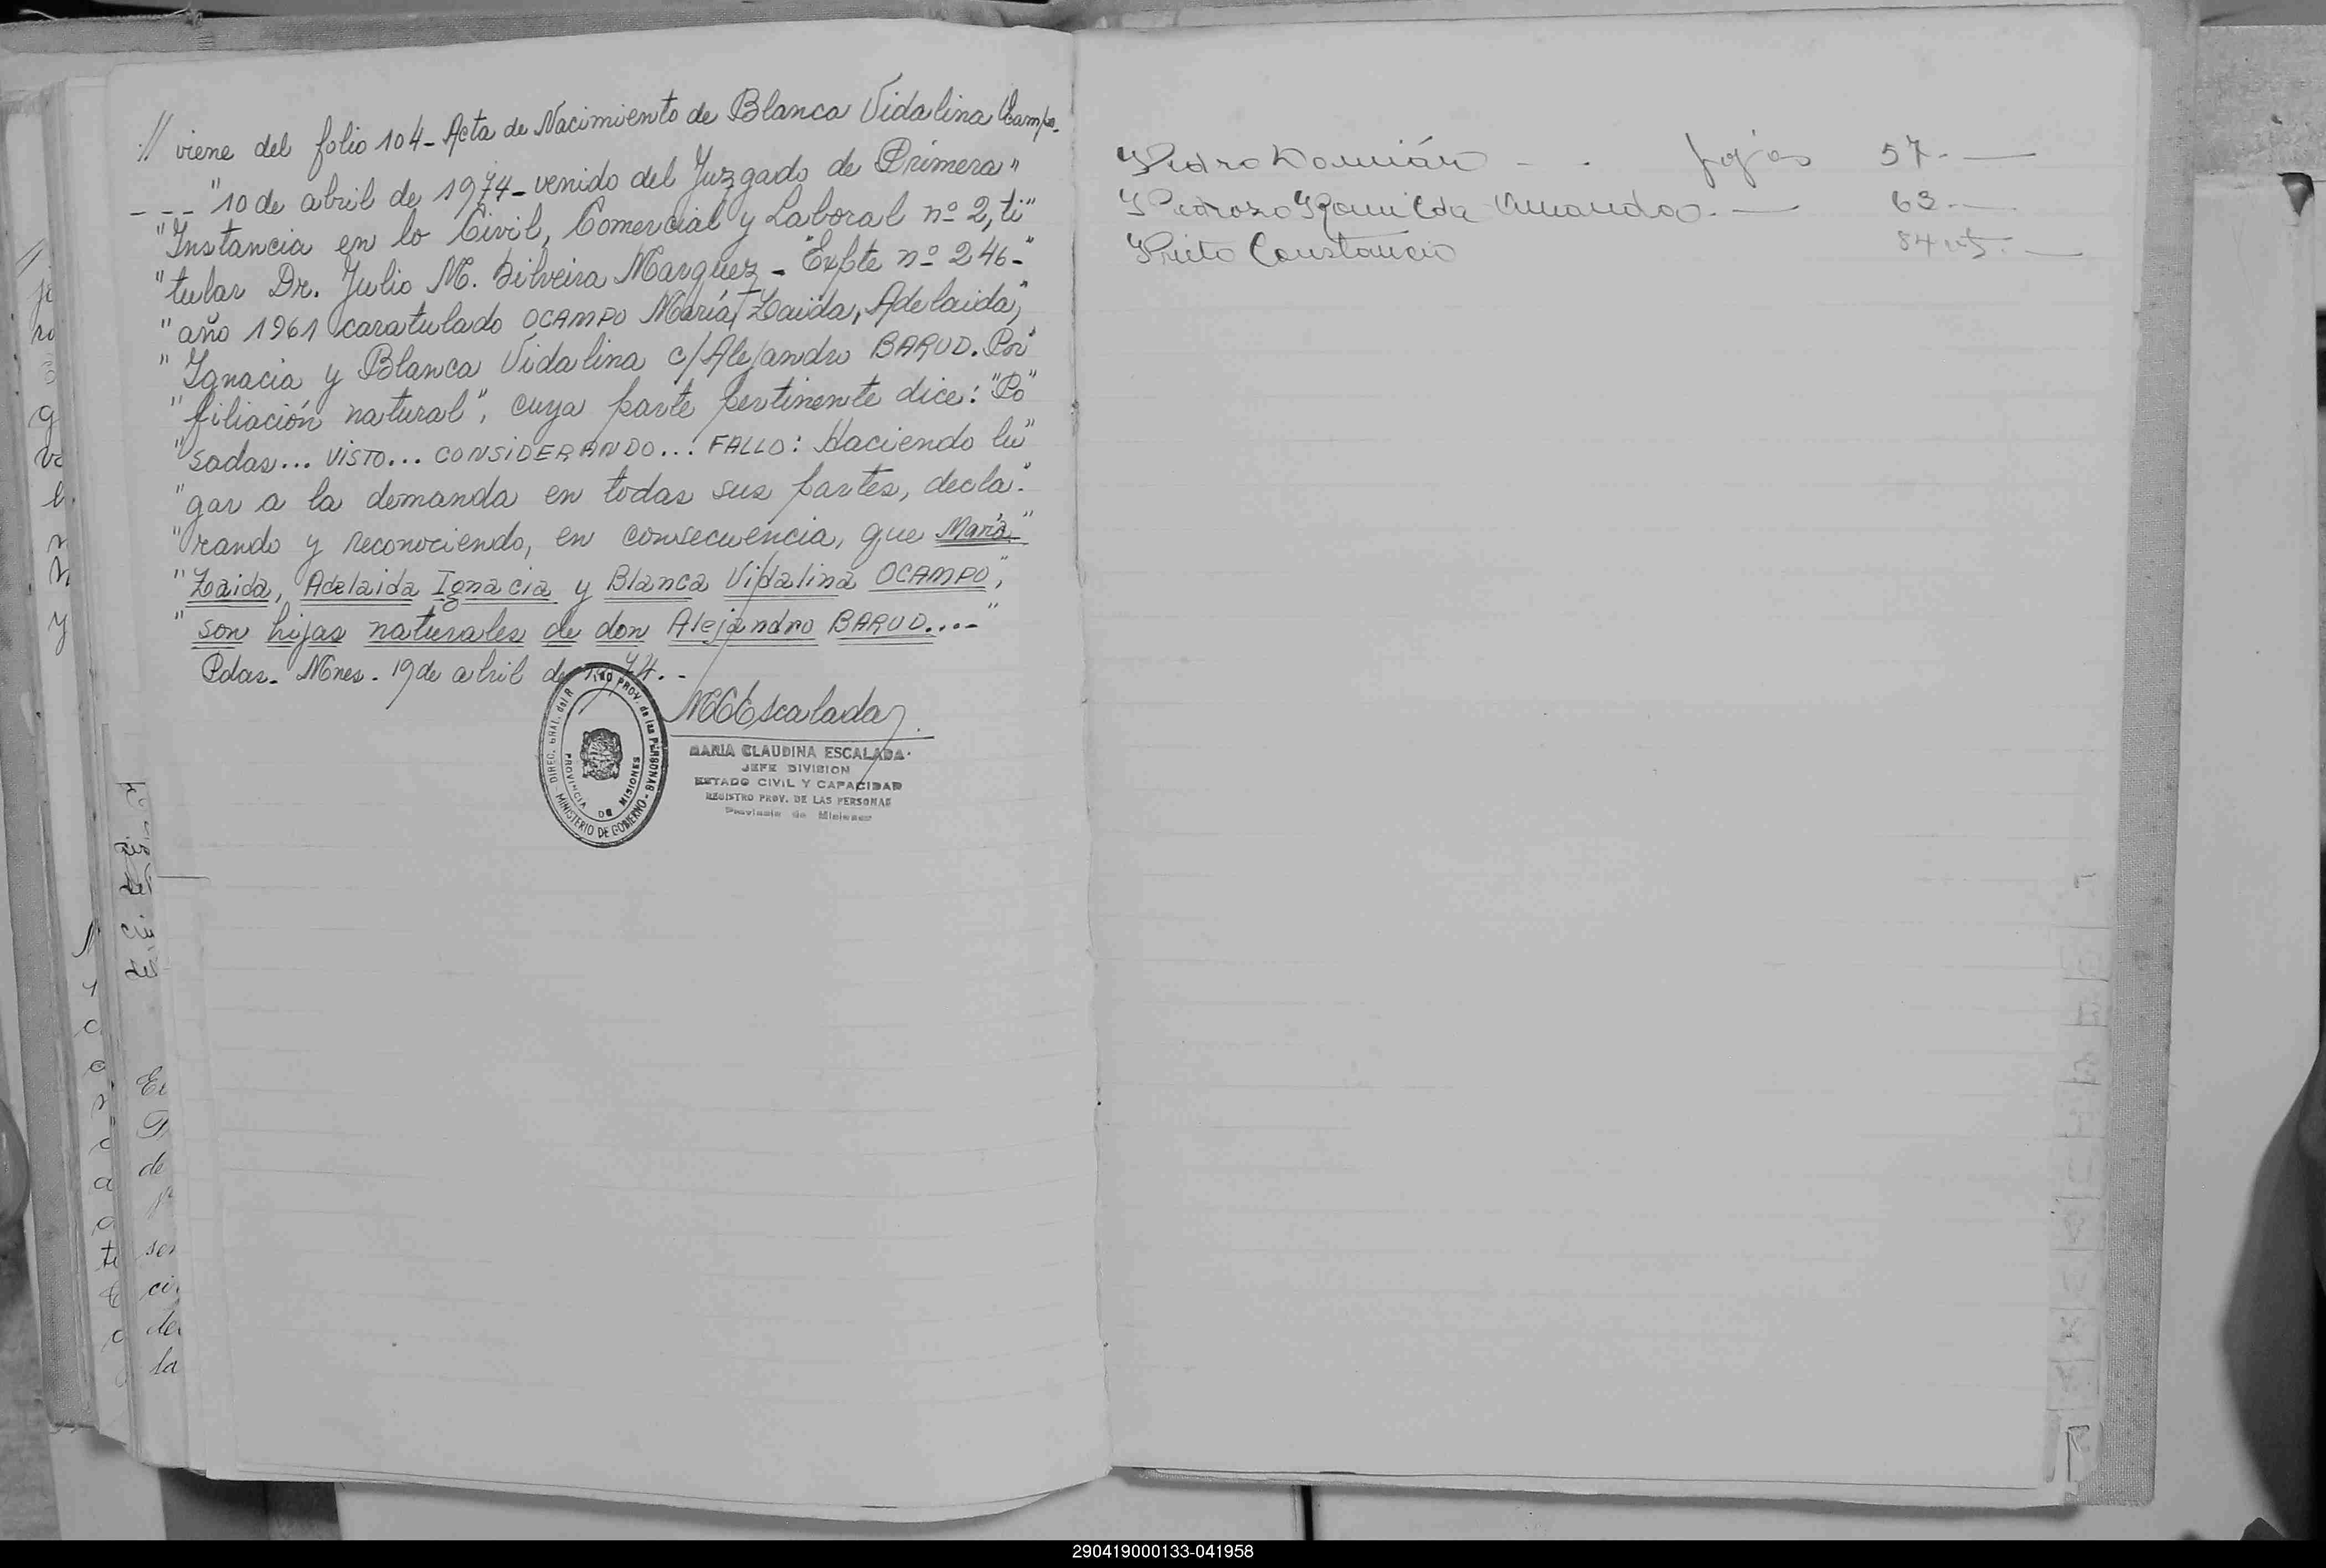 // viene del folio 104- Acta de Nacimiento de Blanca Vidalina Ocampo.
- - - "10 de abril de 1974- venido del Juzgado de Primera"
"Instancia en lo Civil, Comercial y Laboral nº 2, ti"
"tular Dr. Julio M. Silveira Marquez - "Expte nº 246-"
"año 1961 caratulado OCAMPO María, Zaida, Adelaida,"
"Ignacia y Blanca Vidalina c/Alejandro BARUD. Por"
"filiación natural", cuya parte pertinente dice: "Po"
"sadas... VISTO... CONSIDERANDO... FALLO: Haciendo lu"
"gar a la demanda en todas sus partes, decla."
"rando y reconociendo, en consecuencia, que María"
"Zaida, Adelaida Ignacia y Blanca Vidalina OCAMPO",
"son hijas naturales de don Alejandro BARUD....-"
Pdas. Mnes. 19 de abril de 1974.-
MCEscalada
MARIA CLAUDINA ESCALADA
JEFE DIVISION
ESTADO CIVIL Y CAPACIDAD
REGISTRO PROV. DE LAS PERSONAS
Provincia de Misiones
DIREC. GRAL. del R PROV. de las PERSONAS
MINISTERIO DE GOBIERNO
PROVINCIA DE MISIONES
Pedro Damián - - fojas 57.-
Pedrozo Romilda Amanda.- 63.-
Prieto Constancio 84
290419000133-041958